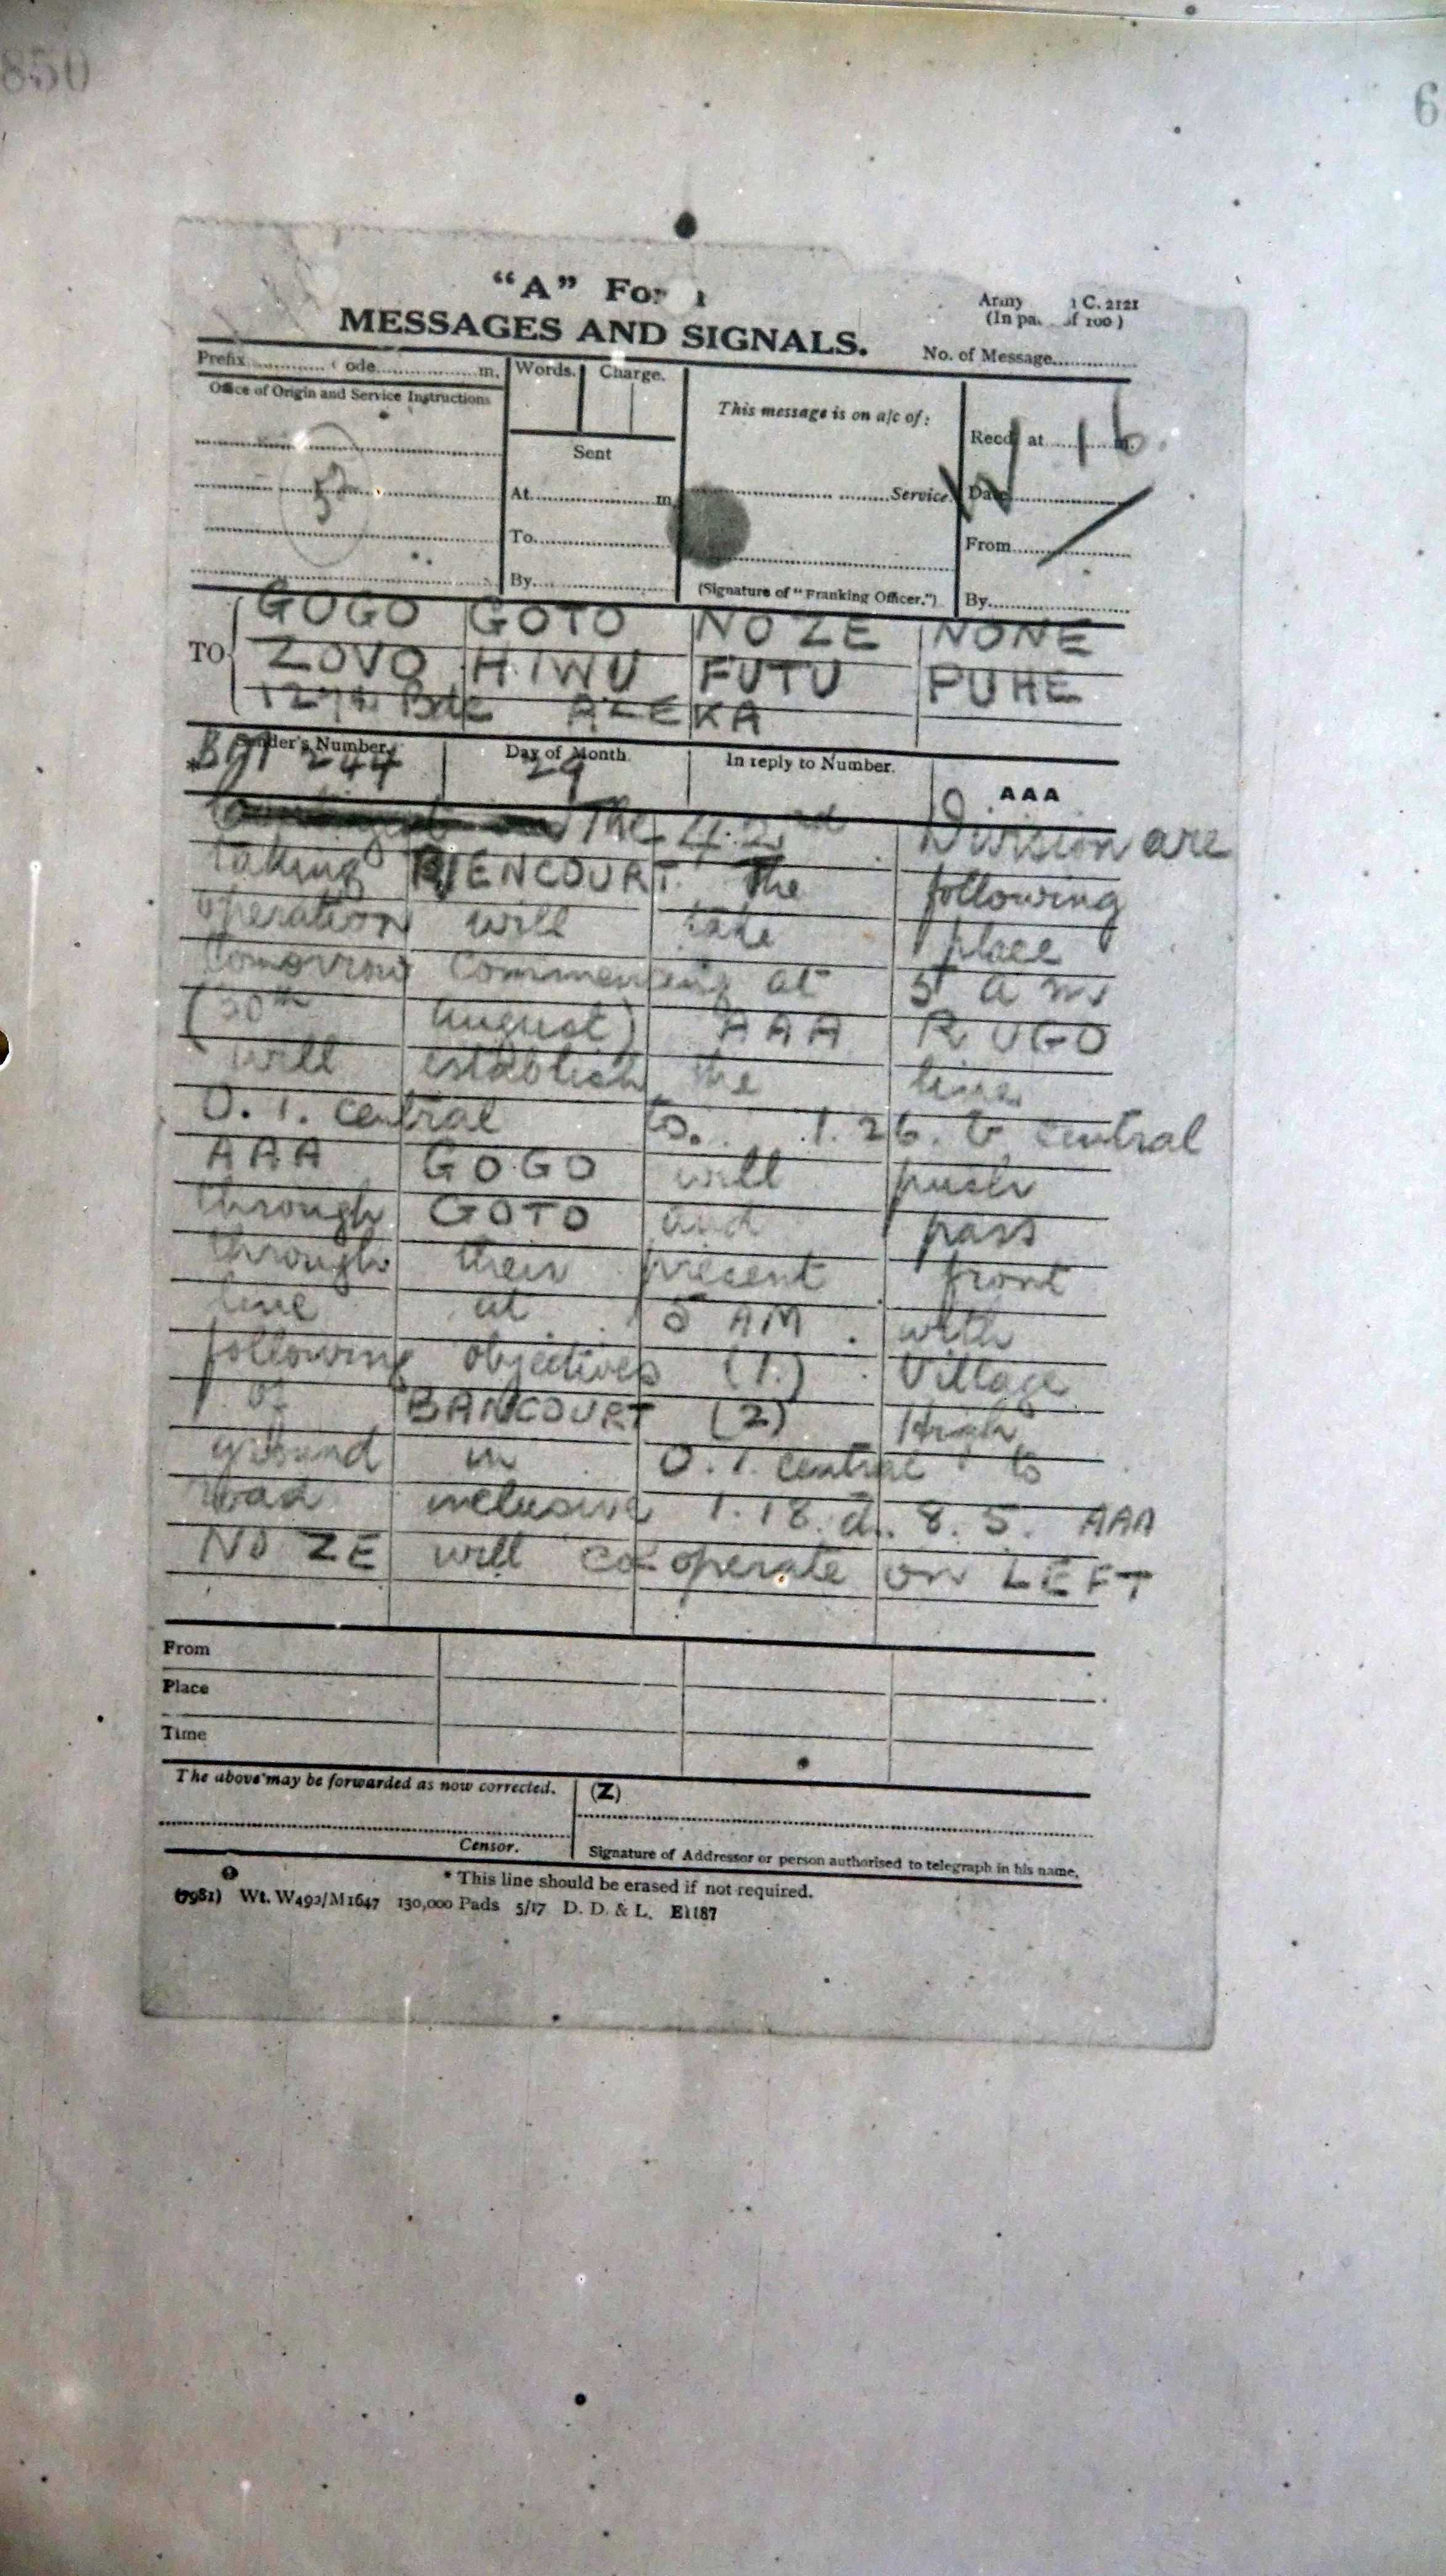 850
6
"A" For
MESSAGES AND SIGNALS.
Army C. 2121
(In pa. of 100)
No. of Message
Prefix ode m.
Words. Charge.
Office of Origin and Service Instructions
This message is on a/c of:
Recd at m.
Sent
At m.
Service.
Date
To
From
By
(Signature of "Franking Officer.")
By
TO
GOGO GOTO NOZE NONE
ZOVO HIWU FUTU PUHE
127th Bde AZEKA
Sender's Number. Day of Month In reply to Number. AAA
244 29
The 42nd Division are
taking RIENCOURT. The following
operation will take place
tomorrow commencing at 5 am
(30th August) AAA RUGO
will establish the line
O.1. central to 1.26. central
AAA GOGO will push
through GOTO and pass
through their present front
line at 5 AM with
following objectives (1.) Village
of BANCOURT (2) High
ground in O.1. central to
road inclusive 1.18.d. 8.5. AAA
NOZE will co-operate on LEFT
From
Place
Time
The above may be forwarded as now corrected.
(Z)
Censor.
Signature of Addressor or person authorised to telegraph in his name.
* This line should be erased if not required.
(7981) Wt. W492/M1647 130,000 Pads 5/17 D. D. & L. E1187